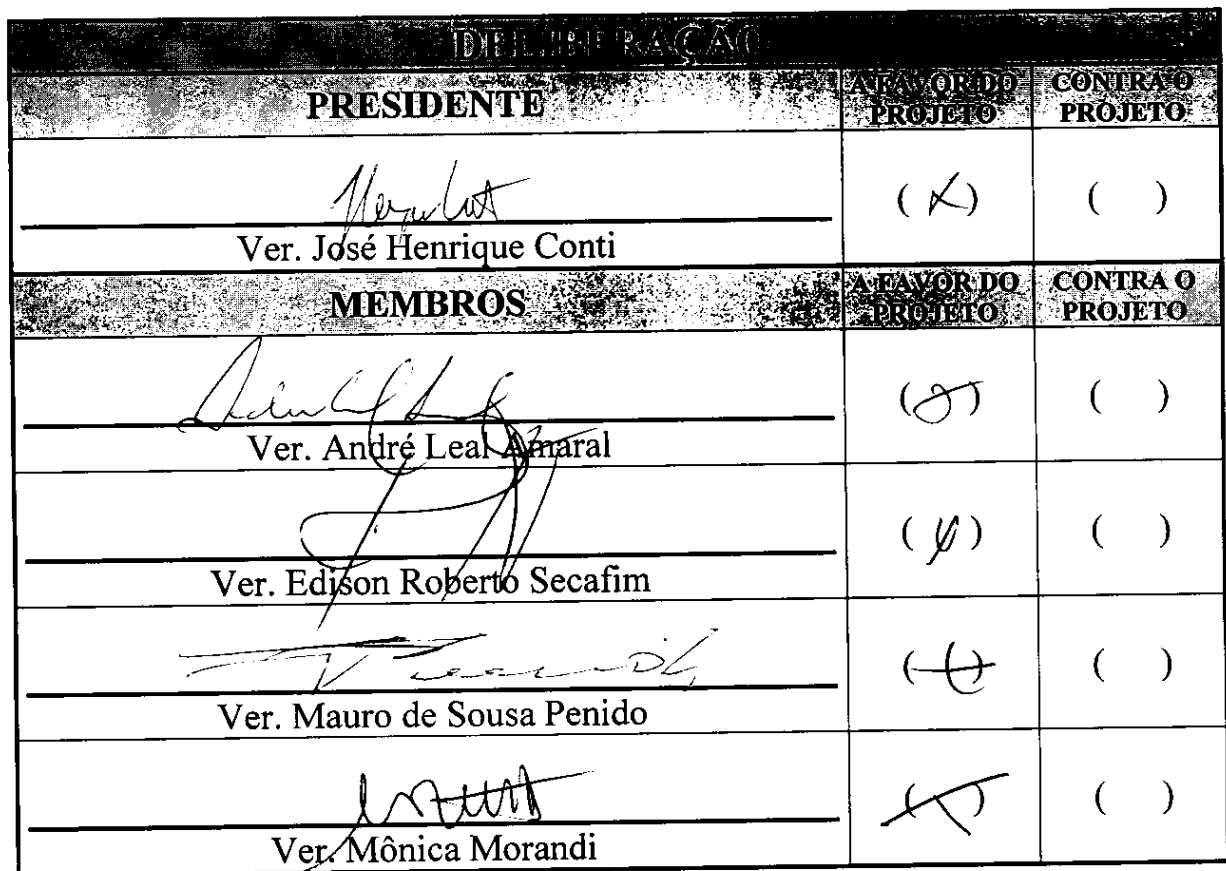 DELIBERAÇÃO
PRESIDENTE
A FAVOR DO PROJETO
CONTRA O PROJETO
Ver. José Henrique Conti
(X)
( )
MEMBROS
A FAVOR DO PROJETO
CONTRA O PROJETO
Ver. André Leal Amaral
( )
Ver. Edison Roberto Secafim
( )
Ver. Mauro de Sousa Penido
( )
Ver. Mônica Morandi
(X)
( )